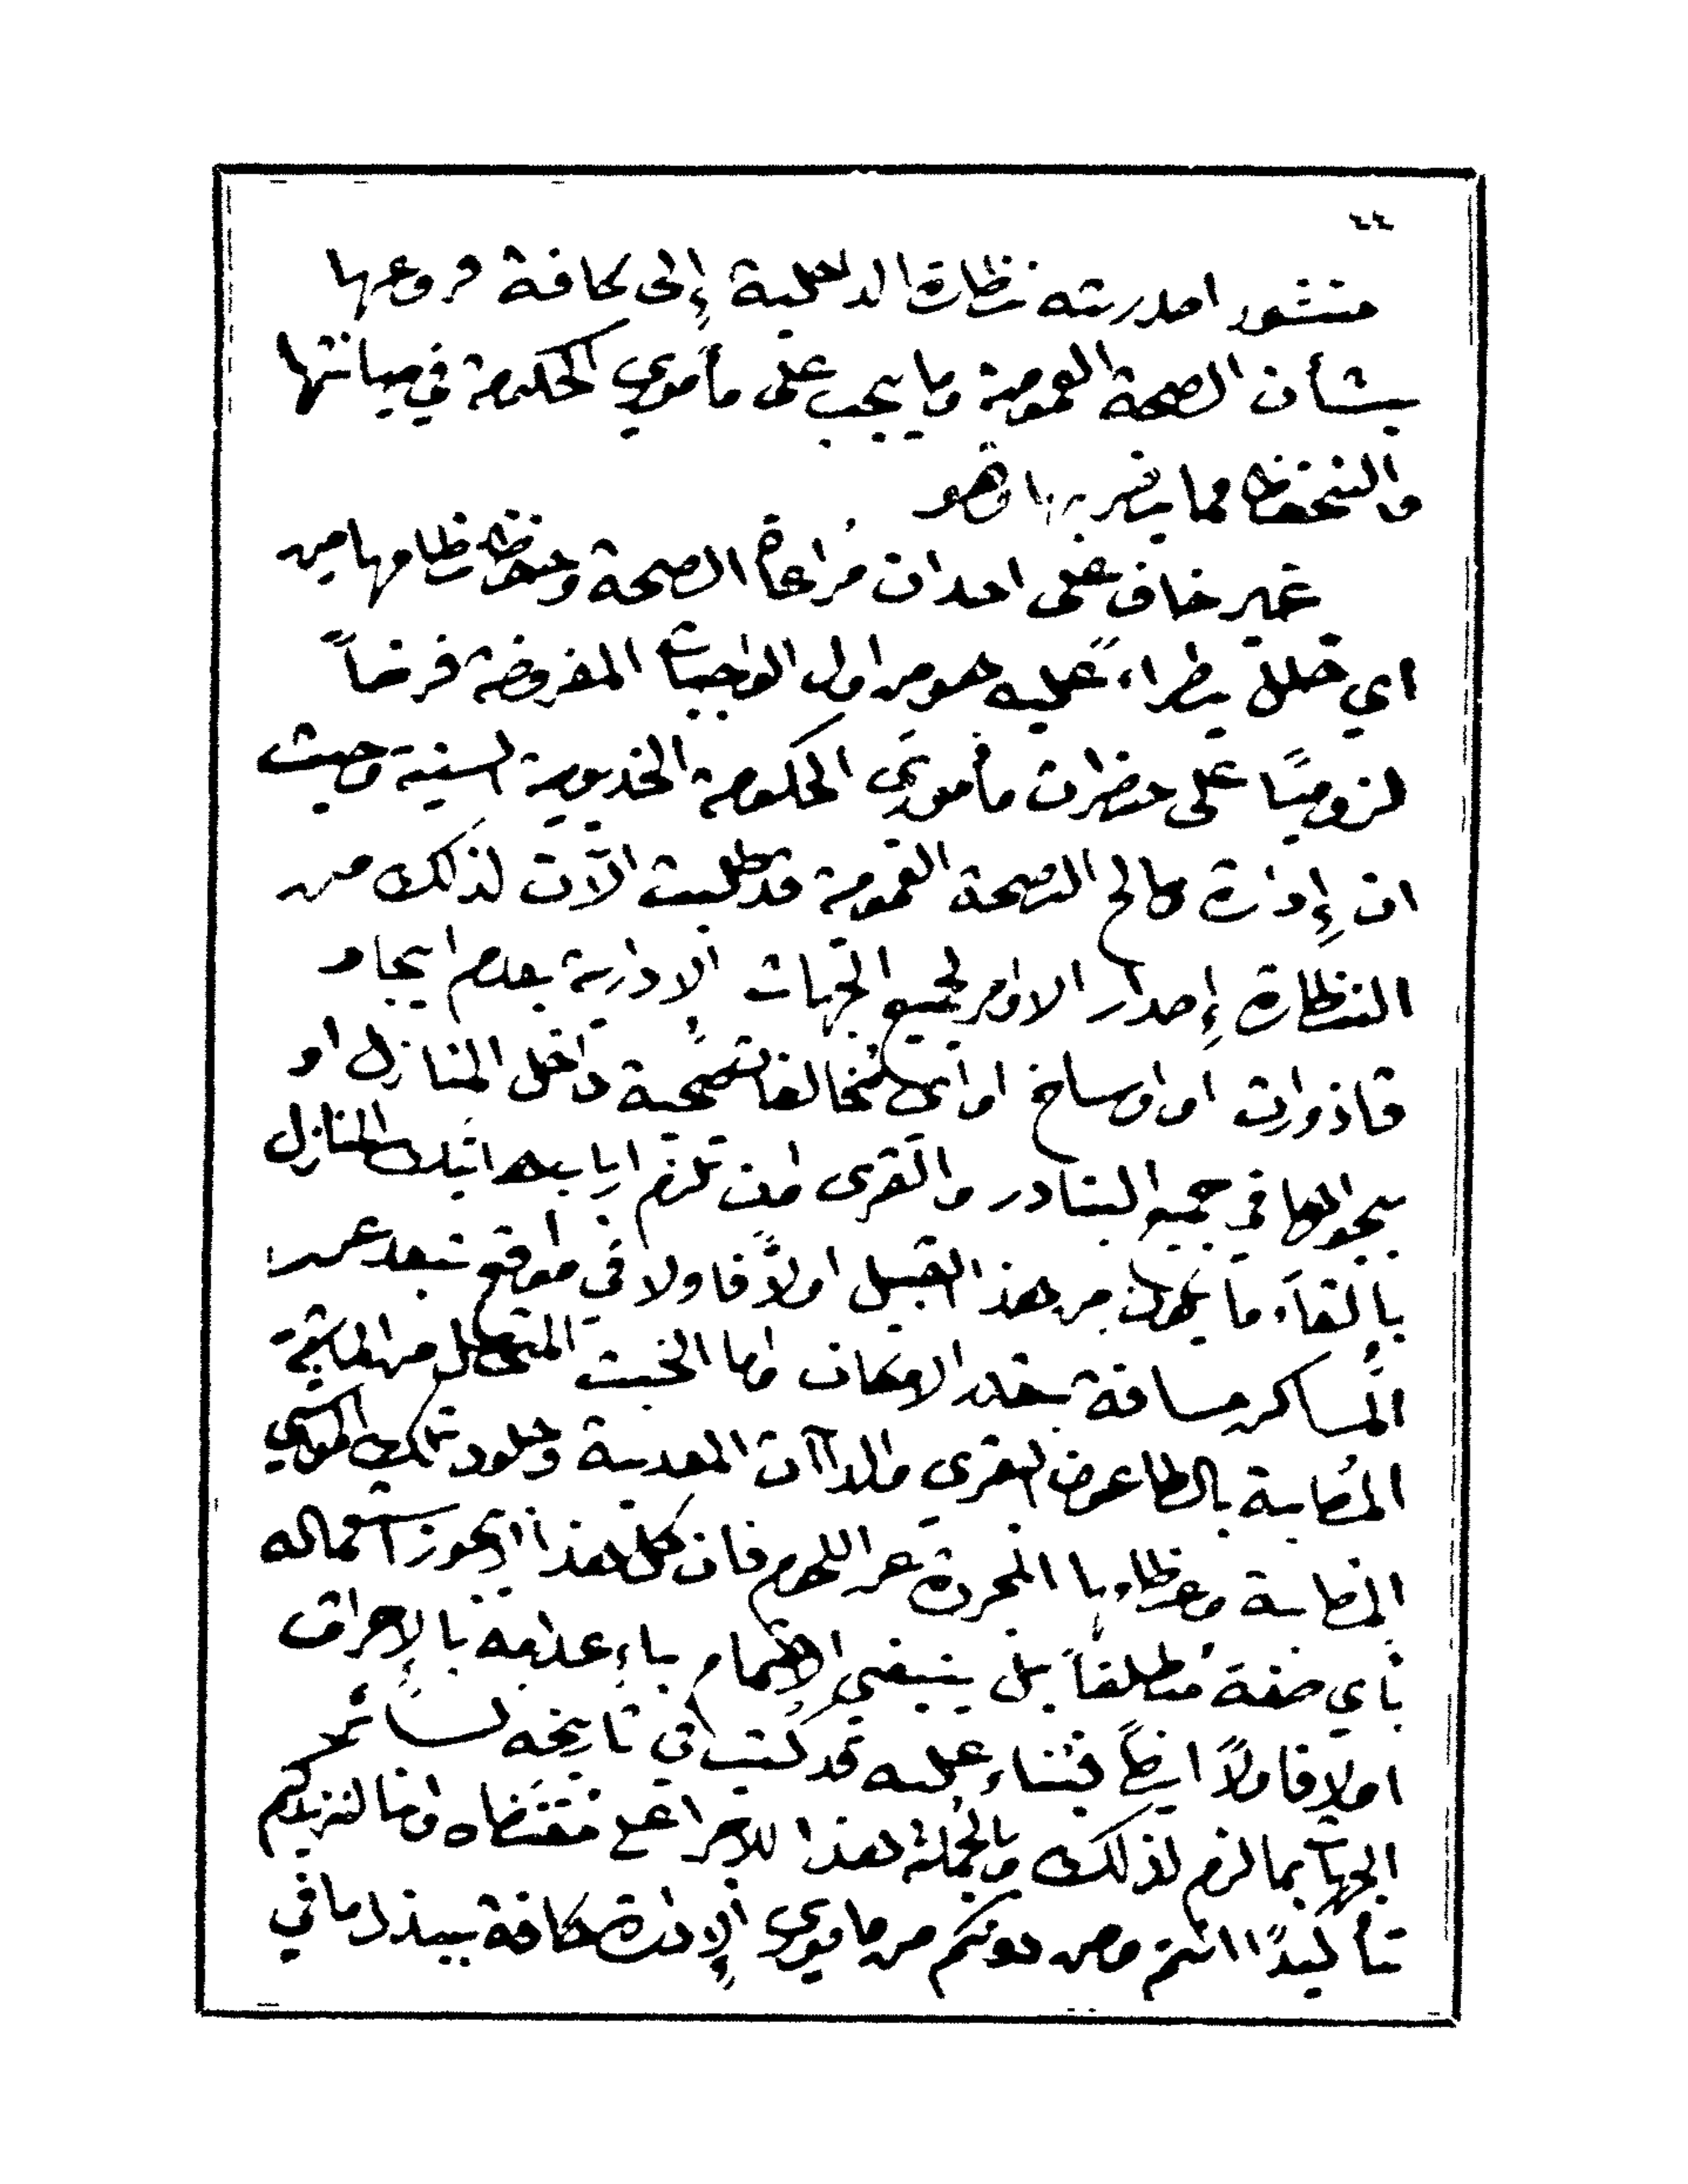 ٤٤
منشور اصدرته نظارة الداخلية إلى كافة فروعها
بشأن الصحة العمومية وما يجب على مأموري الحكومة في صيانتها
والتحفظ مما يضر بها وهو
غير خاف على احد ان مُراعاة الصحة وحفظ نظامها من
اي خلل يطراء عليه هو من اول الواجبات المفروضة فرضاً
لزوميًا على حضرات مأموري الحكومة الخديوية السنية وحيث
ان إدارة مصالح الصحة العمومية قد طلبت الآن لذلك من
النظارة إصدار الاوامر لجميع الجهات الادارية بعدم ايجاد
قاذورات او اوساخ او اي مُخالفات صُحية داخل المنازل او
بجوالها في جميع البنادر والقرى وان تلزم اربابها تلك المنازل
بالقاء ما يكون من هذا القبيل اولاً فاولا في مواقع تبعد عن
المساكن مسافة بقدر الامكان واما الخبث المتحصل من الماشية
المُصابة بالطاعون البقري والداآت المعدية وجلود تلك المواشي
المصابة وعظامها المجردة عن اللحوم فان كل هذا لا يجوز استعماله
بأي صفة مُطلقاً بل ينبغي الاهتمام باءِعدامه بالإحراق
اولا فاولاً ايضاً فبناء عليه قد كُتب في تاريخه لسائر
الجهات بما لزم لذلك وبالجُملة هذا للاجرا على مُقتضاه واننا لنزيدكم
تأكيدًا انتم ومن دونكم من ماموري الإدارة كافة ببذل ما في